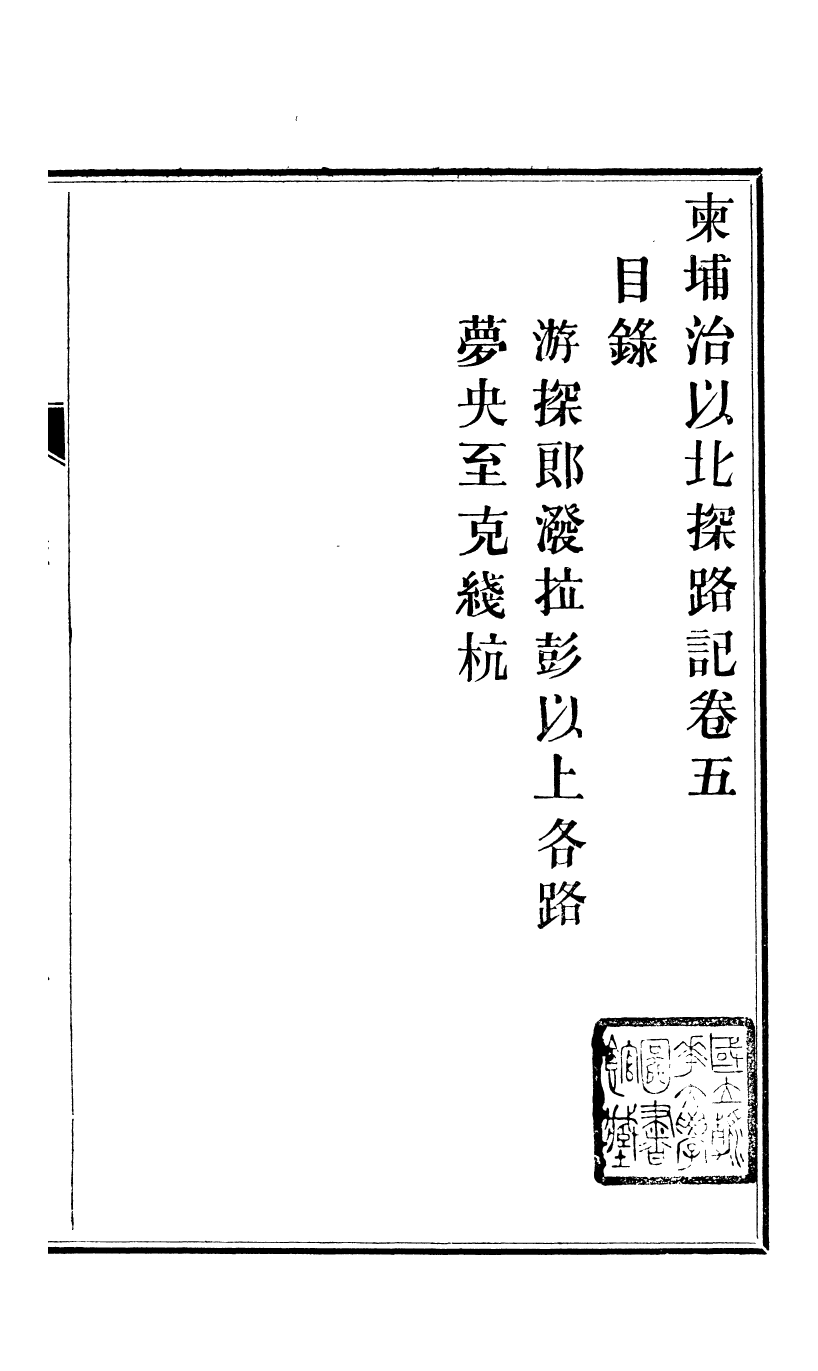 柬埔治以北探路記卷五
目錄
游探郎潑拉彭以上各路
夢央至克綫杭
國立
大學
圖書
館藏